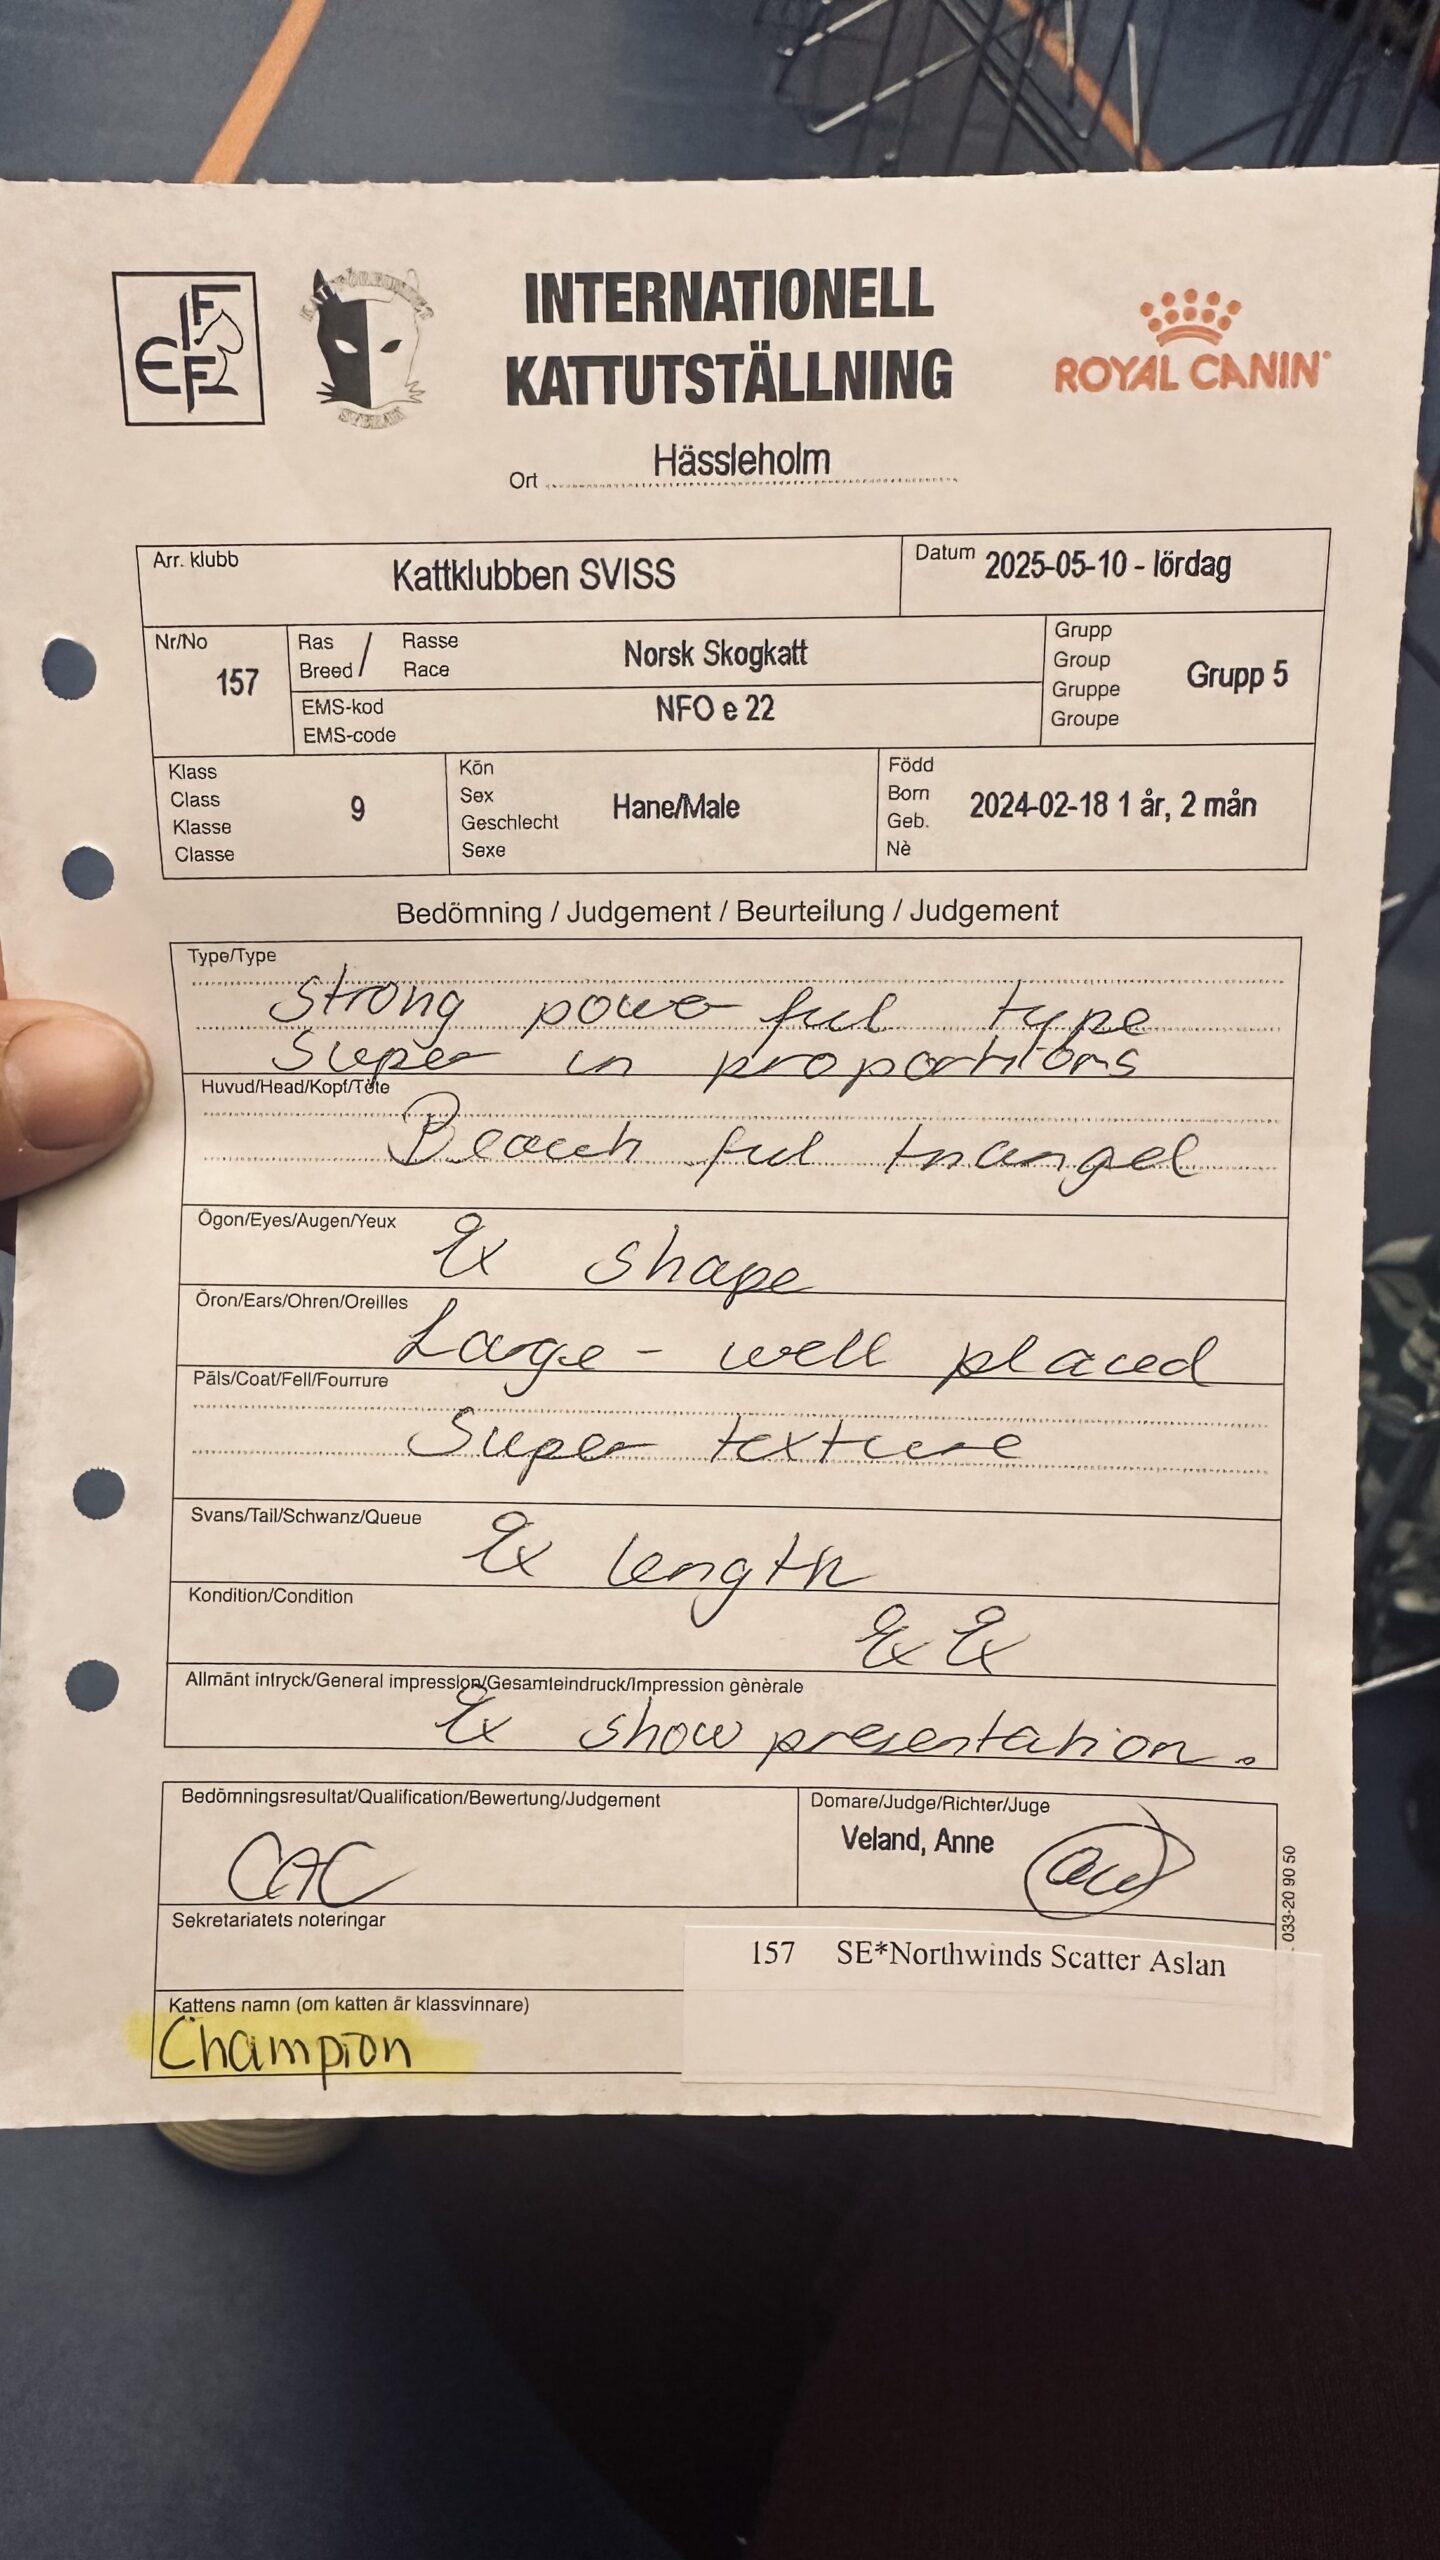 FIFe
KATTFÖRBUNDET
SVERAK
INTERNATIONELL
KATTUTSTÄLLNING
ROYAL CANIN
Ort Hässleholm
Arr. klubb Kattklubben SVISS
Datum 2025-05-10 - lördag
Nr/No 157
Ras / Rasse
Breed / Race
Norsk Skogkatt
EMS-kod
EMS-code
NFO e 22
Grupp
Group
Gruppe
Groupe
Grupp 5
Klass
Class
Klasse
Classe
9
Kön
Sex
Geschlecht
Sexe
Hane/Male
Född
Born
Geb.
Nè
2024-02-18 1 år, 2 mån
Bedömning / Judgement / Beurteilung / Judgement
Type/Type
Strong powerful type
Super in proportions
Huvud/Head/Kopf/Tête
Beautiful triangel
Ögon/Eyes/Augen/Yeux
Ex shape
Öron/Ears/Ohren/Oreilles
Large - well placed
Päls/Coat/Fell/Fourrure
Super texture
Svans/Tail/Schwanz/Queue
Ex length
Kondition/Condition
Ex Ex
Allmänt intryck/General impression/Gesamteindruck/Impression gènèrale
Ex show presentation.
Bedömningsresultat/Qualification/Bewertung/Judgement
CAC
Domare/Judge/Richter/Juge
Veland, Anne
Sekretariatets noteringar
157 SE*Northwinds Scatter Aslan
Kattens namn (om katten är klassvinnare)
Champion
033-20 90 50